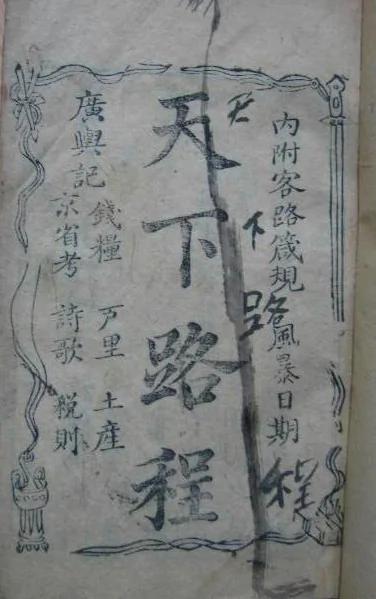 內附客路箴規風暴日期
天下路程
天下路程
廣輿記
錢糧 戶里 土產
京省考 詩歌 稅則